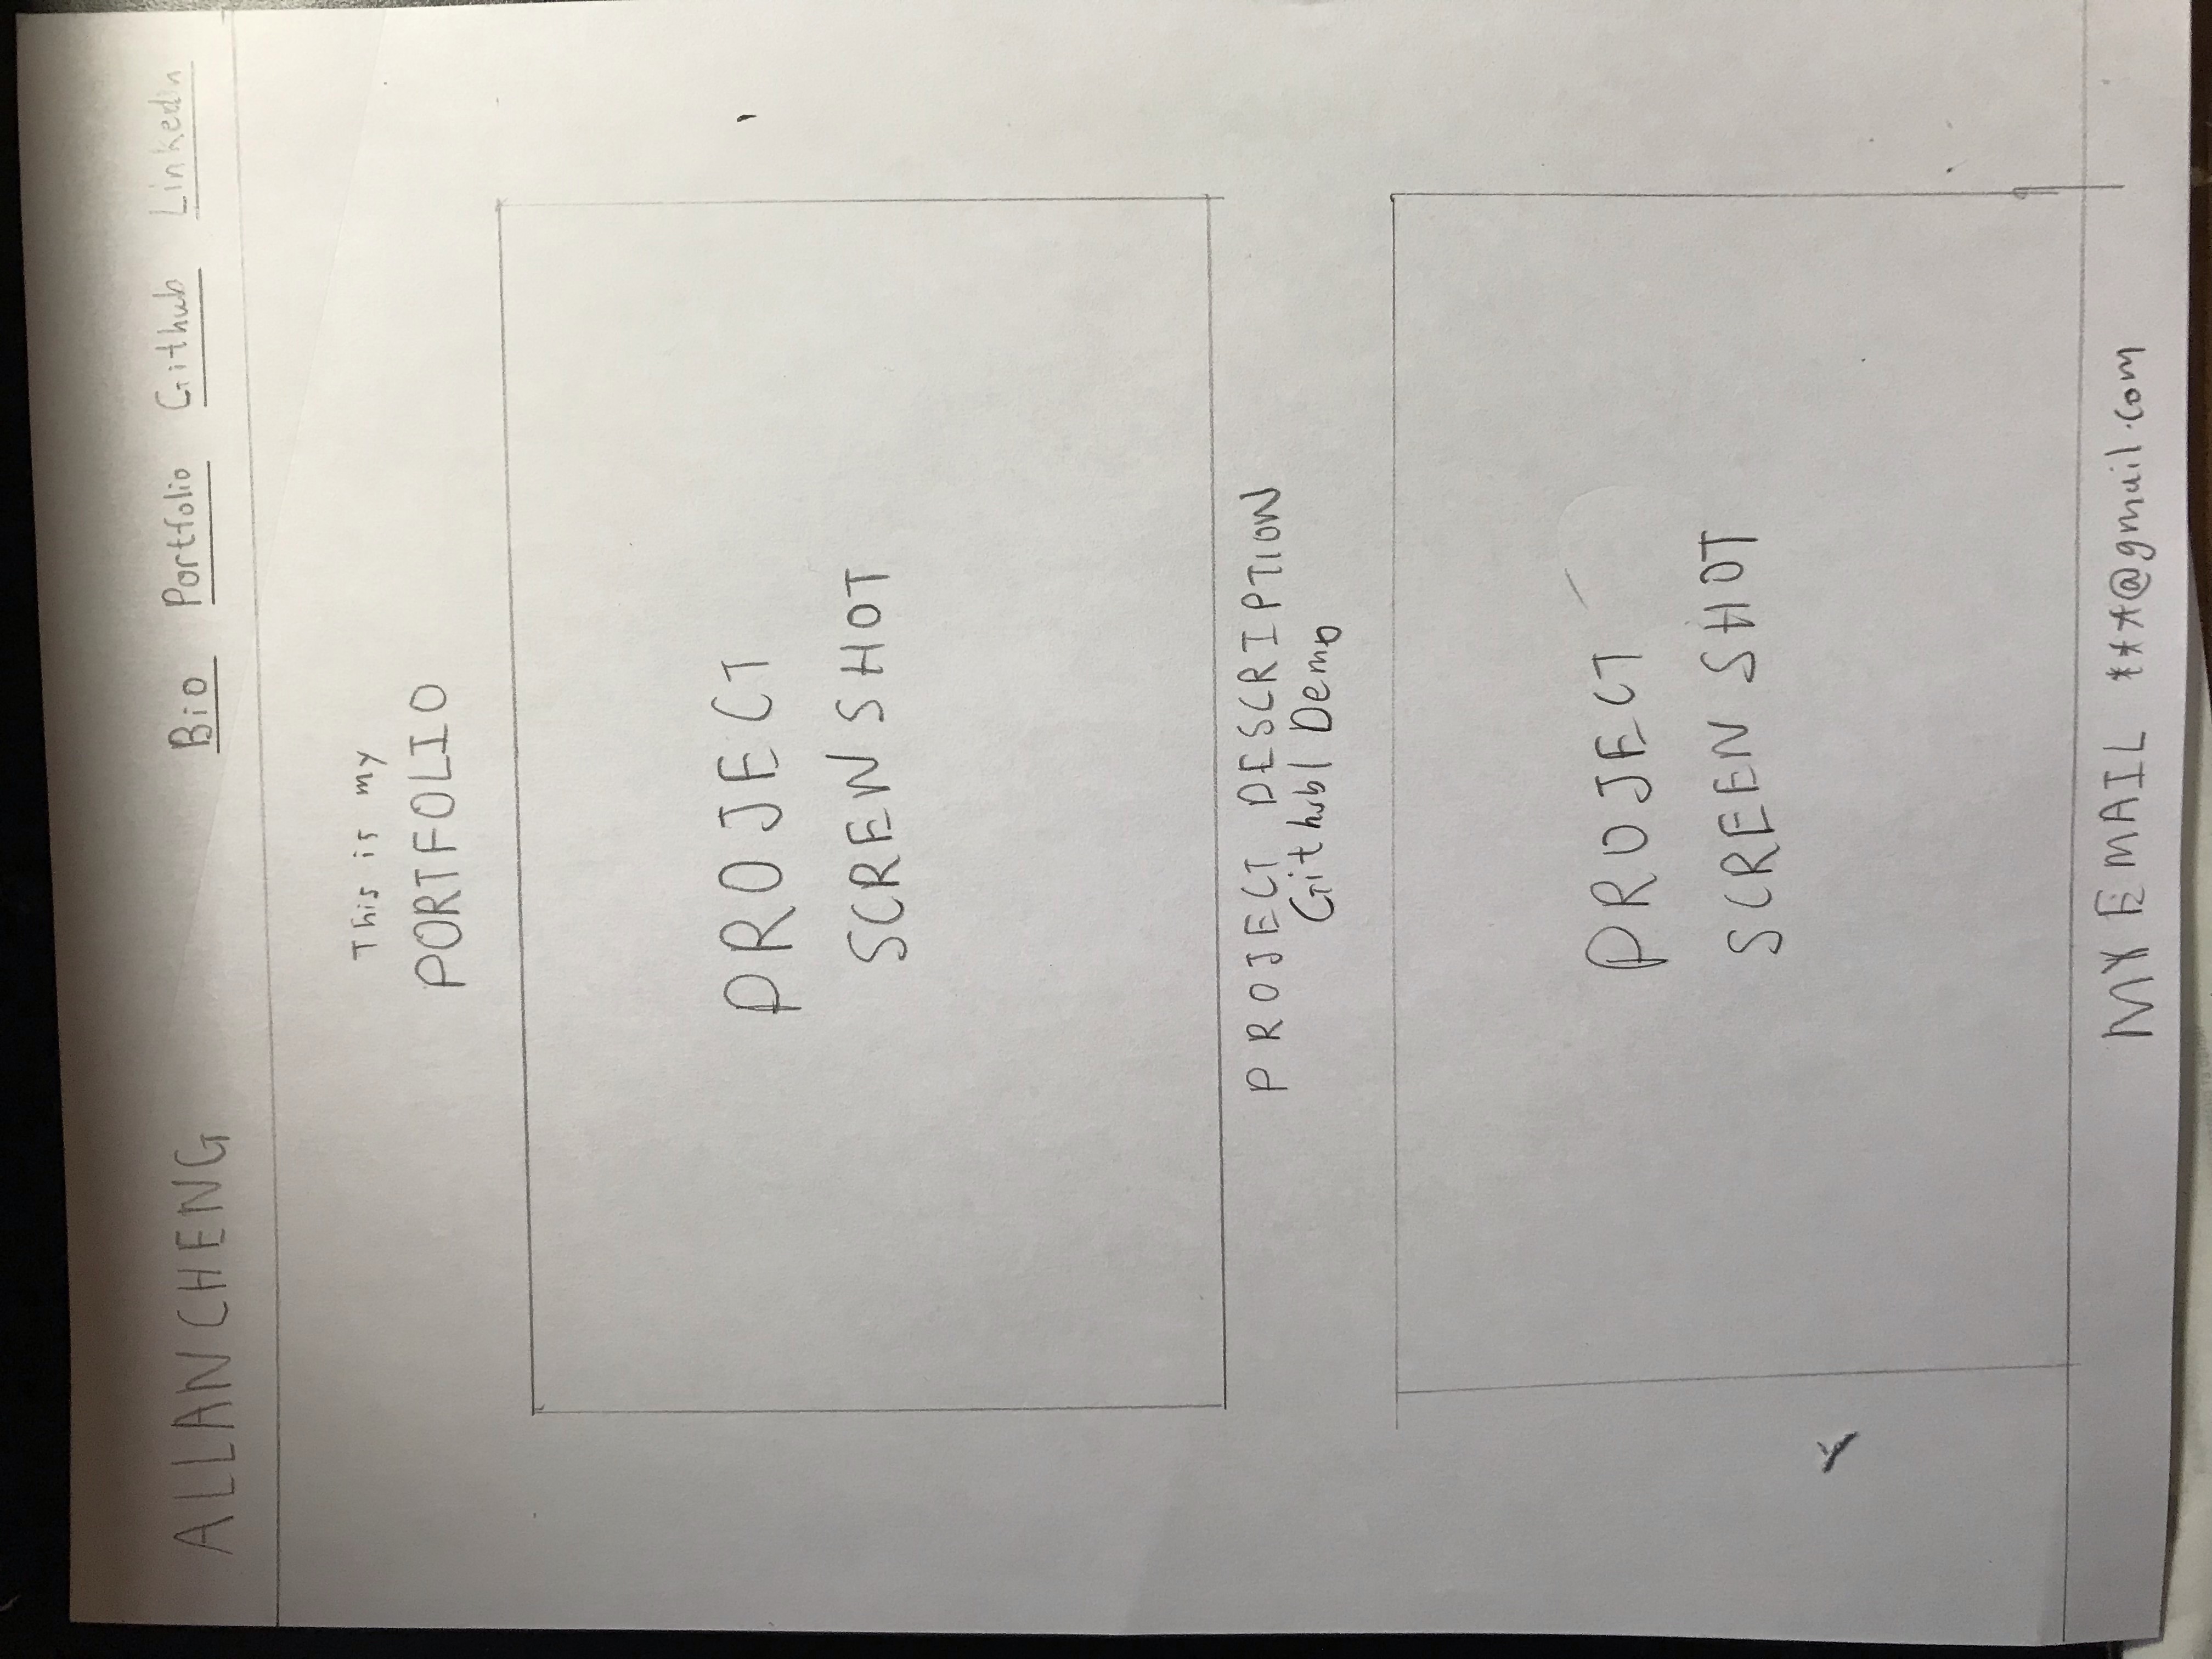 ALLAN CHENG Bio Portfolio Github Linkedin
This is my
PORTFOLIO
PROJECT
SCREWSHOT
PROJECT DESCRIPTION
Github| Demo
PROJECT
SCREEN SHOT
MY EMAIL ***@gmail.com